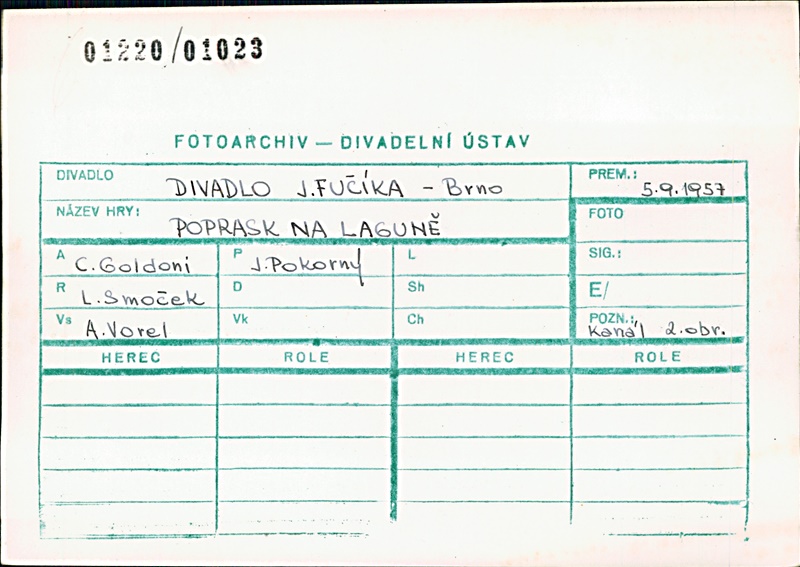 01220/01023
FOTOARCHIV — DIVADELNÍ ÚSTAV
DIVADLO DIVADLO J.FUČÍKA - Brno PREM.: 5.9.1957
NÁZEV HRY: POPRASK NA LAGUNĚ FOTO
A C.Goldoni P J.Pokorný L SIG.:
R L.Smoček D Sh E/
Vs A.Vorel Vk Ch POZN.: Kanál 2.obr.
HEREC ROLE HEREC ROLE